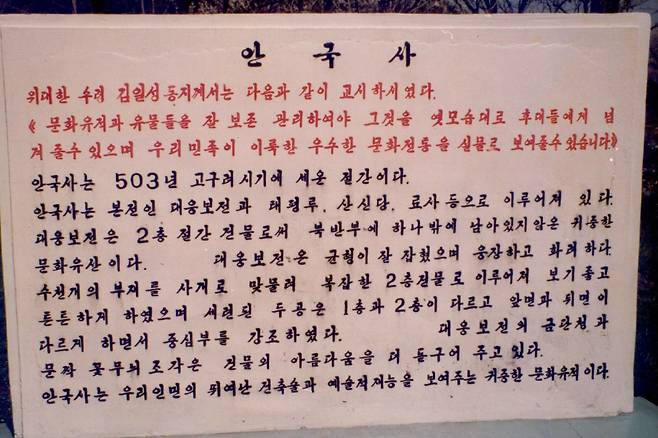 안 국 사
위대한 수령 김일성동지께서는 다음과 같이 교시하시였다.
《 문화유적과 유물들을 잘 보존 관리하여야 그것을 옛모습대로 후대들에게 넘
겨 줄수 있으며 우리 민족이 이룩한 우수한 문화전통을 실물로 보여줄수 있습니다》
안국사는 503년 고구려시기에 세운 절간이다.
안국사는 본전인 대웅보전과 태평루, 산신당, 료사 등으로 이루어져 있다.
대웅보전은 2층 절간 건물로써 북반부에 하나밖에 남아있지않은 귀중한
문화유산이다. 대웅보전은 균형이 잘 잡혔으며 웅장하고 화려하다.
수천개의 부재를 사개로 맞물려 복잡한 2층건물로 이루어져 보기좋고
튼튼하게 하였으며 세련된 두공은 1층과 2층이 다르고 앞면과 뒤면이
다르게 하면서 중심부를 강조하였다. 대웅보전의 금단청과
문짝 꽃무의 조각은 건물의 아름다움을 더 돋구어 주고있다.
안국사는 우리인민의 뛰여난 건축술과 예술적재능을 보여주는 귀중한 문화유적이다.